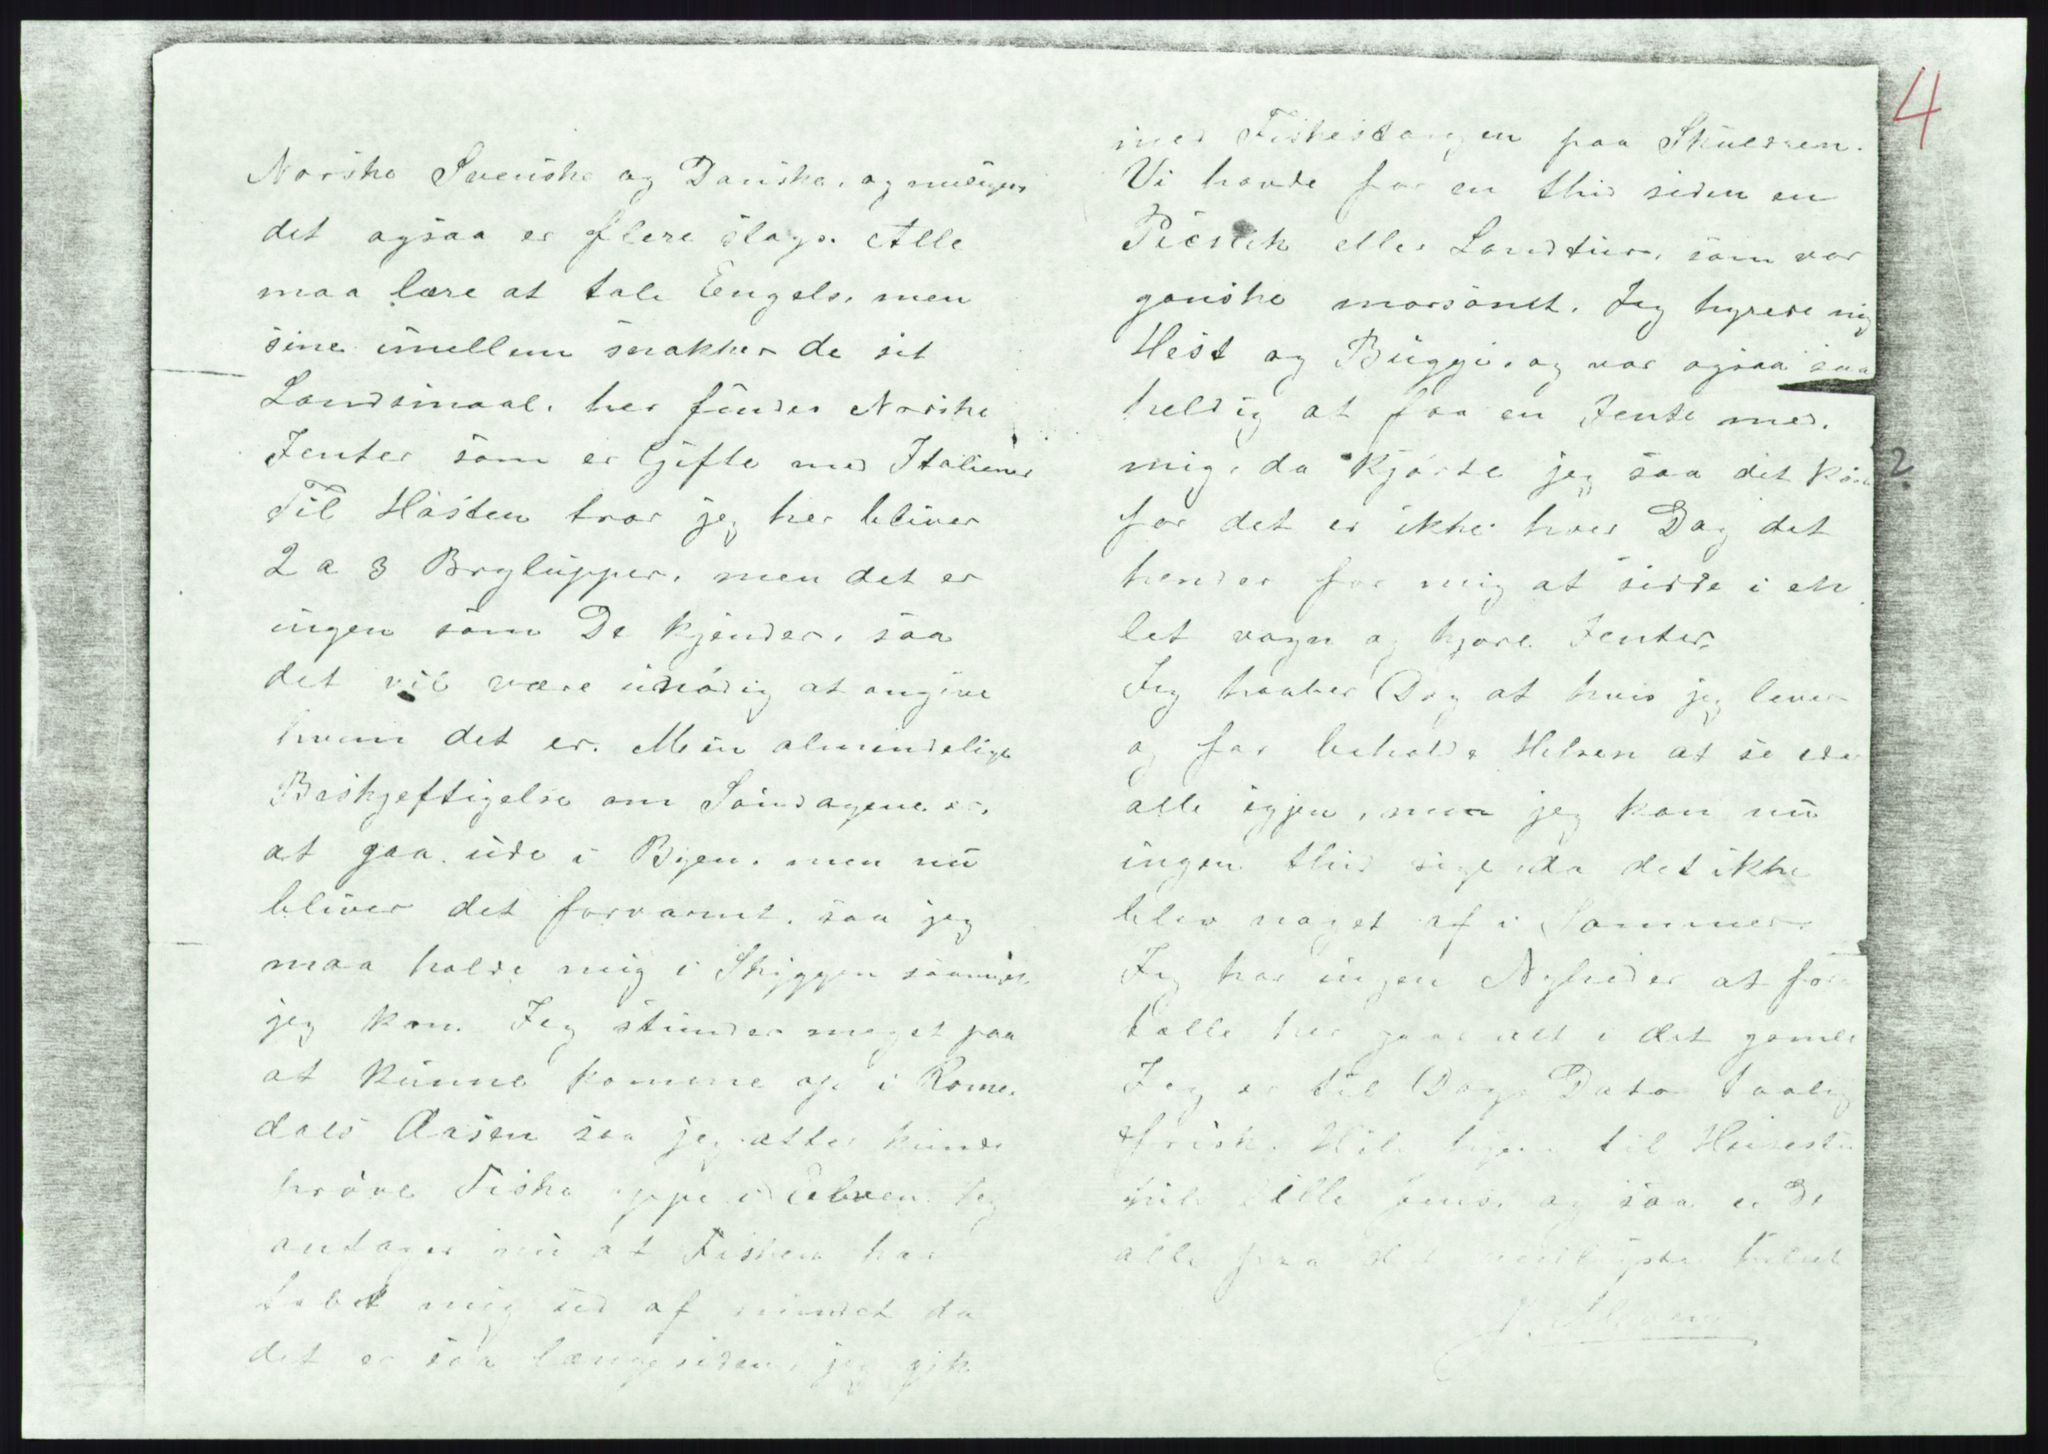 4
Norske Svenske og Danske, og muligens
det ogsaa er flere slags. Alle
maa lære at tale Engels, men
sine imellem snakker de sit
Landsmaal, her findes Norske
Jenter som er Gifte med Italiener
Til Hösten tror jeg her bliver
2 a 3 Brylupper, men det er
ingen som De kjender, saa
det vil være unödig at angive
hvem det er. Min almindelige
Beskjeftigelse om Söndagene er,
at gaa ude i Byen, men nu
bliver det forvarmt, saa jeg
maa holde mig i Skyggen saavidt
jeg kan. Jeg stunder meget paa
at kunne komme op i Rome-
dals Aasen saa jeg atter kunde
pröve Fiske oppe i Elven. Jeg
antager nu at Fisken har
tabt mig ud af mindet da
det er saa længe siden, jeg gik
med Fiskestangen paa Skuldren.
Vi havde for en thid siden en
Picnick eller Landtur, som var
ganske morsomt. Jeg hyrede mig
Hest og Buggi, og var ogsaa saa
heldig at faa en Jente med
mig, da kjörte jeg saa det
for det er ikke hver Dag det
hender for mig at sidde i en
let vogn og kjore Jenter.
Jeg haaber Dog at hvis jeg lever
og faar beholde Helsen at se eder
alle igjen, men jeg kan nu
ingen thid sige da det ikke
blev noget af i Sommer.
Jeg har ingen Nyheder at for
talle her gaar alt i det gamle
Jeg er til Dags Dato taalig
frisk. Hils
til
og saa er De
alle paa det venligste hilset
?